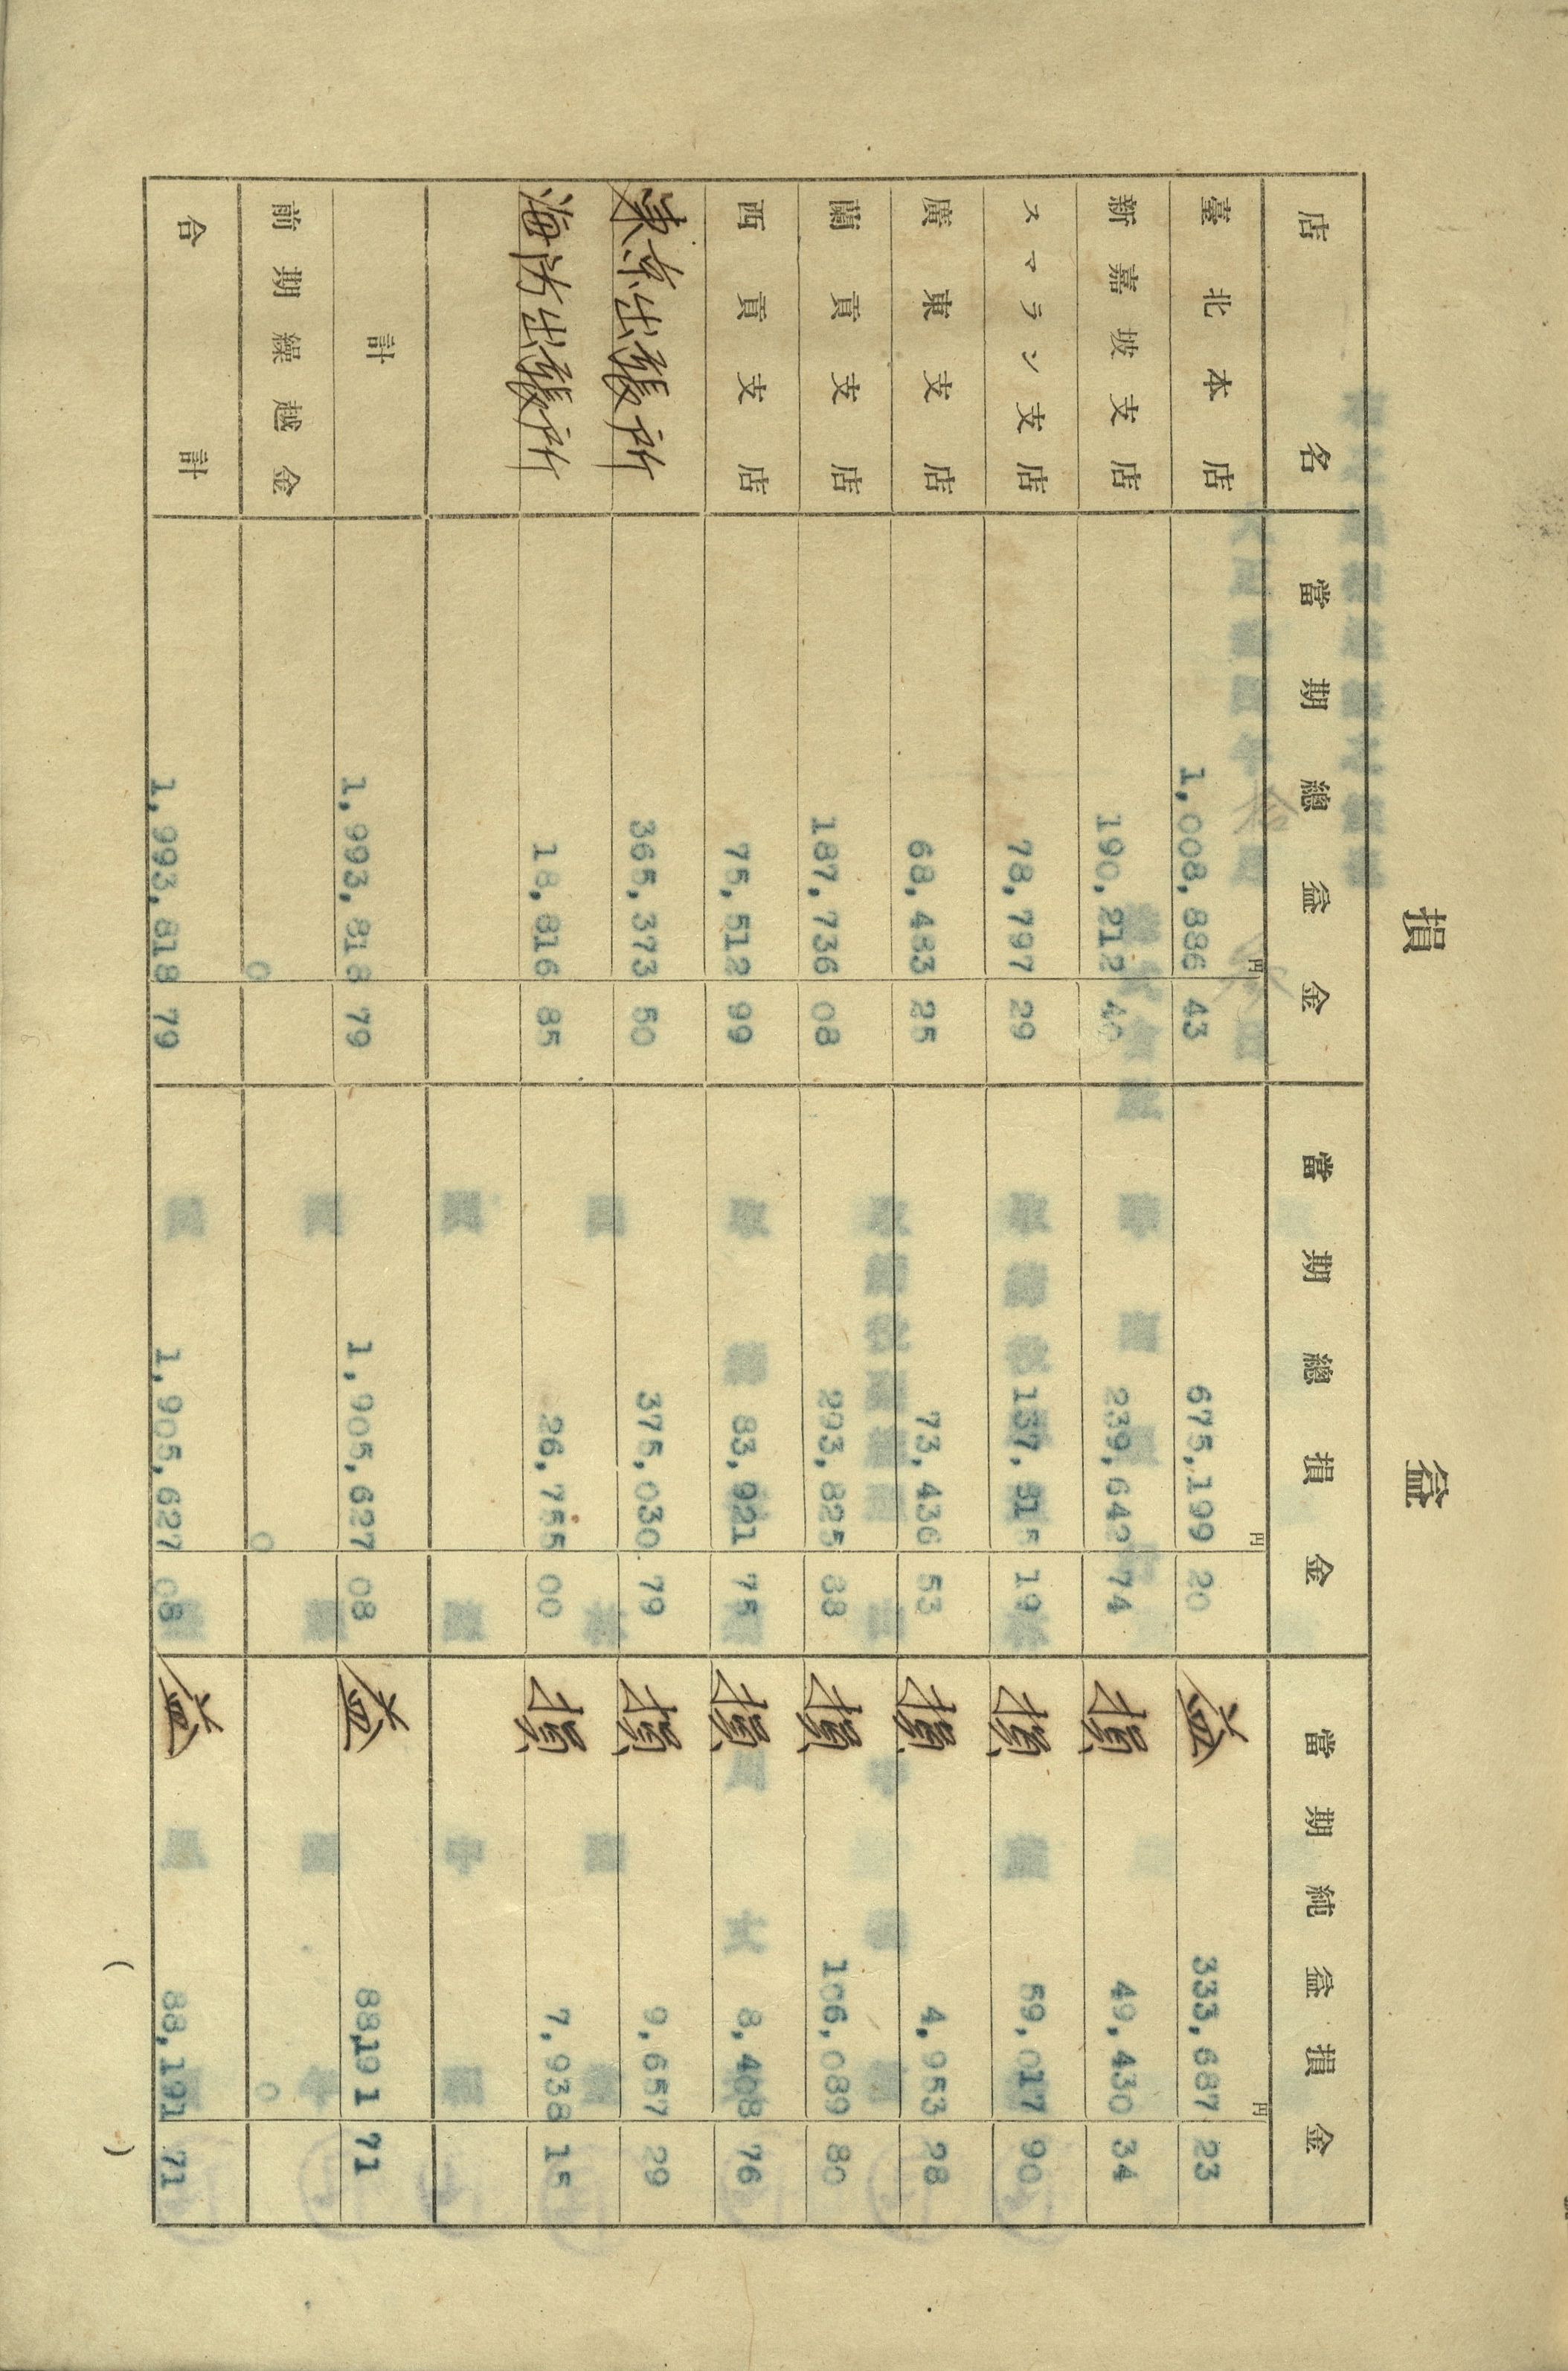 損益
店名 當期總益金 當期總損金 當期純益損金
円 円 円
臺北本店 1,008,886 43 675,199 20 益 333,687 23
新嘉坡支店 190,212 40 239,642 74 損 49,430 34
スマラン支店 78,797 29 137,815 19 損 59,017 90
廣東支店 68,483 25 73,436 53 損 4,953 28
蘭貢支店 187,736 08 293,825 88 損 106,089 80
西貢支店 75,512 99 83,921 75 損 8,408 76
東京出張所 365,373 50 375,030 79 損 9,657 29
海防出張所 18,816 85 26,755 00 損 7,938 15
計 1,993,818 79 1,905,627 08 益 88,191 71
前期繰越金 0 0 0
合計 1,993,818 79 1,905,627 08 益 88,191 71
( )